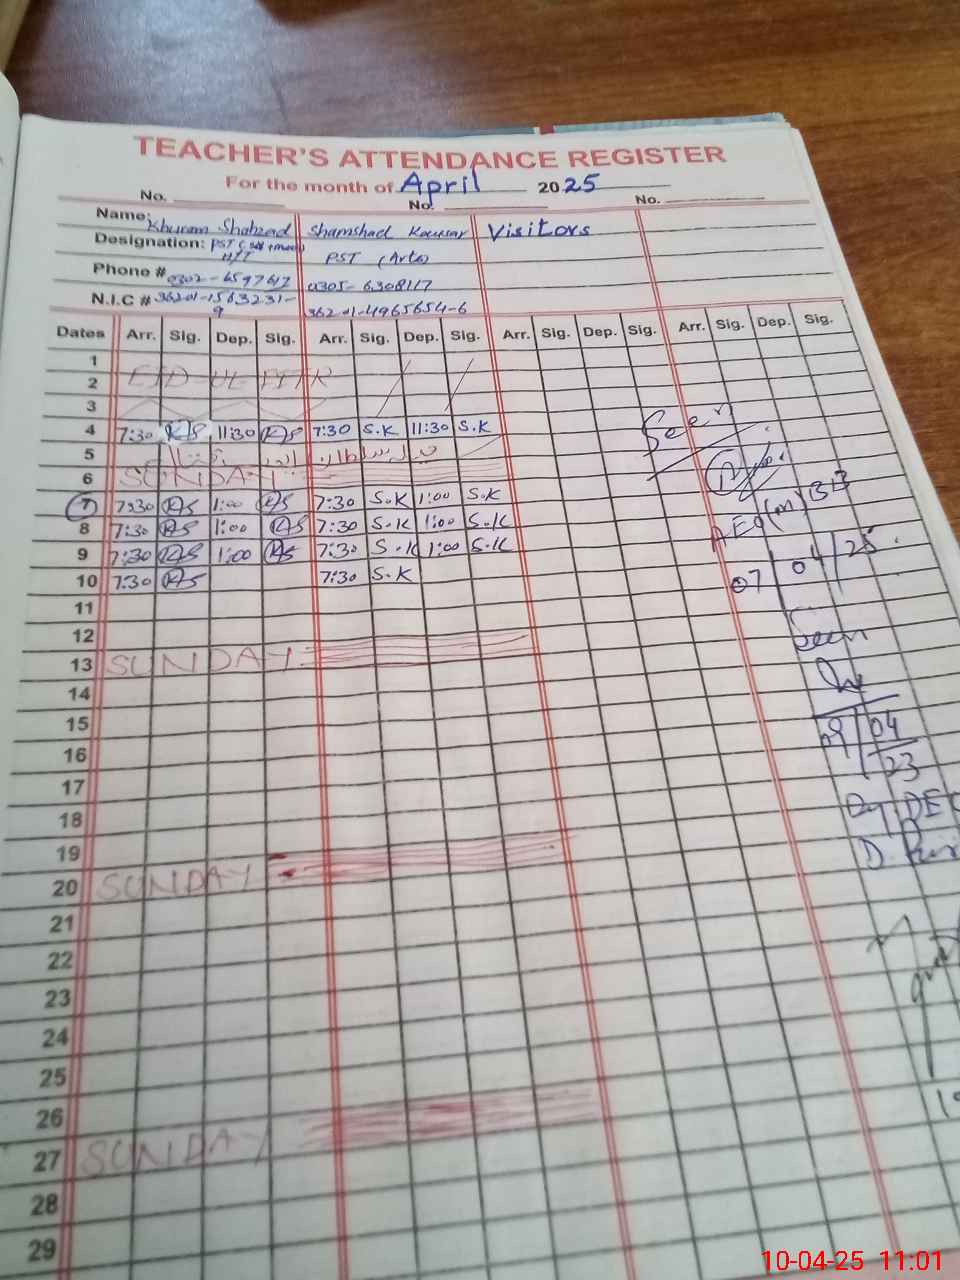 TEACHER'S ATTENDANCE REGISTER
For the month of April 2025
No. No. No.
Name: Khuram Shahzad Shamshad Kousar Visitors
Designation: PST PST (Arts)
H/T
Phone # 0302-6597617 0305-6308117
N.I.C # 36201-1563231-9 36201-4965654-6
Dates Arr. Sig. Dep. Sig. Arr. Sig. Dep. Sig. Arr. Sig. Dep. Sig. Arr. Sig. Dep. Sig.
1
2 EID UL FITR
3
4 7:30 KS 11:30 KS 7:30 S.K 11:30 S.K
5
6 SUNDAY
7 7:30 KS 1:00 KS 7:30 S.K 1:00 S.K
8 7:30 KS 1:00 KS 7:30 S.K 1:00 S.K
9 7:30 KS 1:00 KS 7:30 S.K 1:00 S.K
10 7:30 KS 7:30 S.K
11
12
13 SUNDAY
14
15
16
17
18
19
20 SUNDAY
21
22
23
24
25
26
27 SUNDAY
28
29
Seen
AEO(m)
07/04/25
Seen
04
23
Dy, DEO
10-04-25 11:01